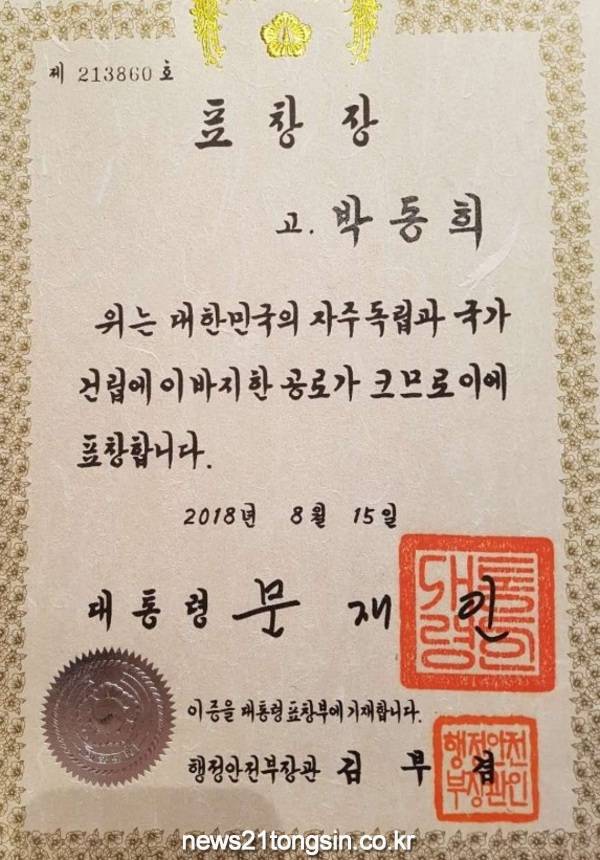 제 213860 호
표 창 장
고. 박 동 희
위는 대한민국의 자주독립과 국가
건립에 이바지한 공로가 크므로 이에
표창합니다.
2018년 8월 15일
대 통 령 문 재 인
대통령인
이 증을 대통령 표창부에 기재합니다.
행정안전부장관 김 부 겸
행정안전
부장관인
news21tongsin.co.kr